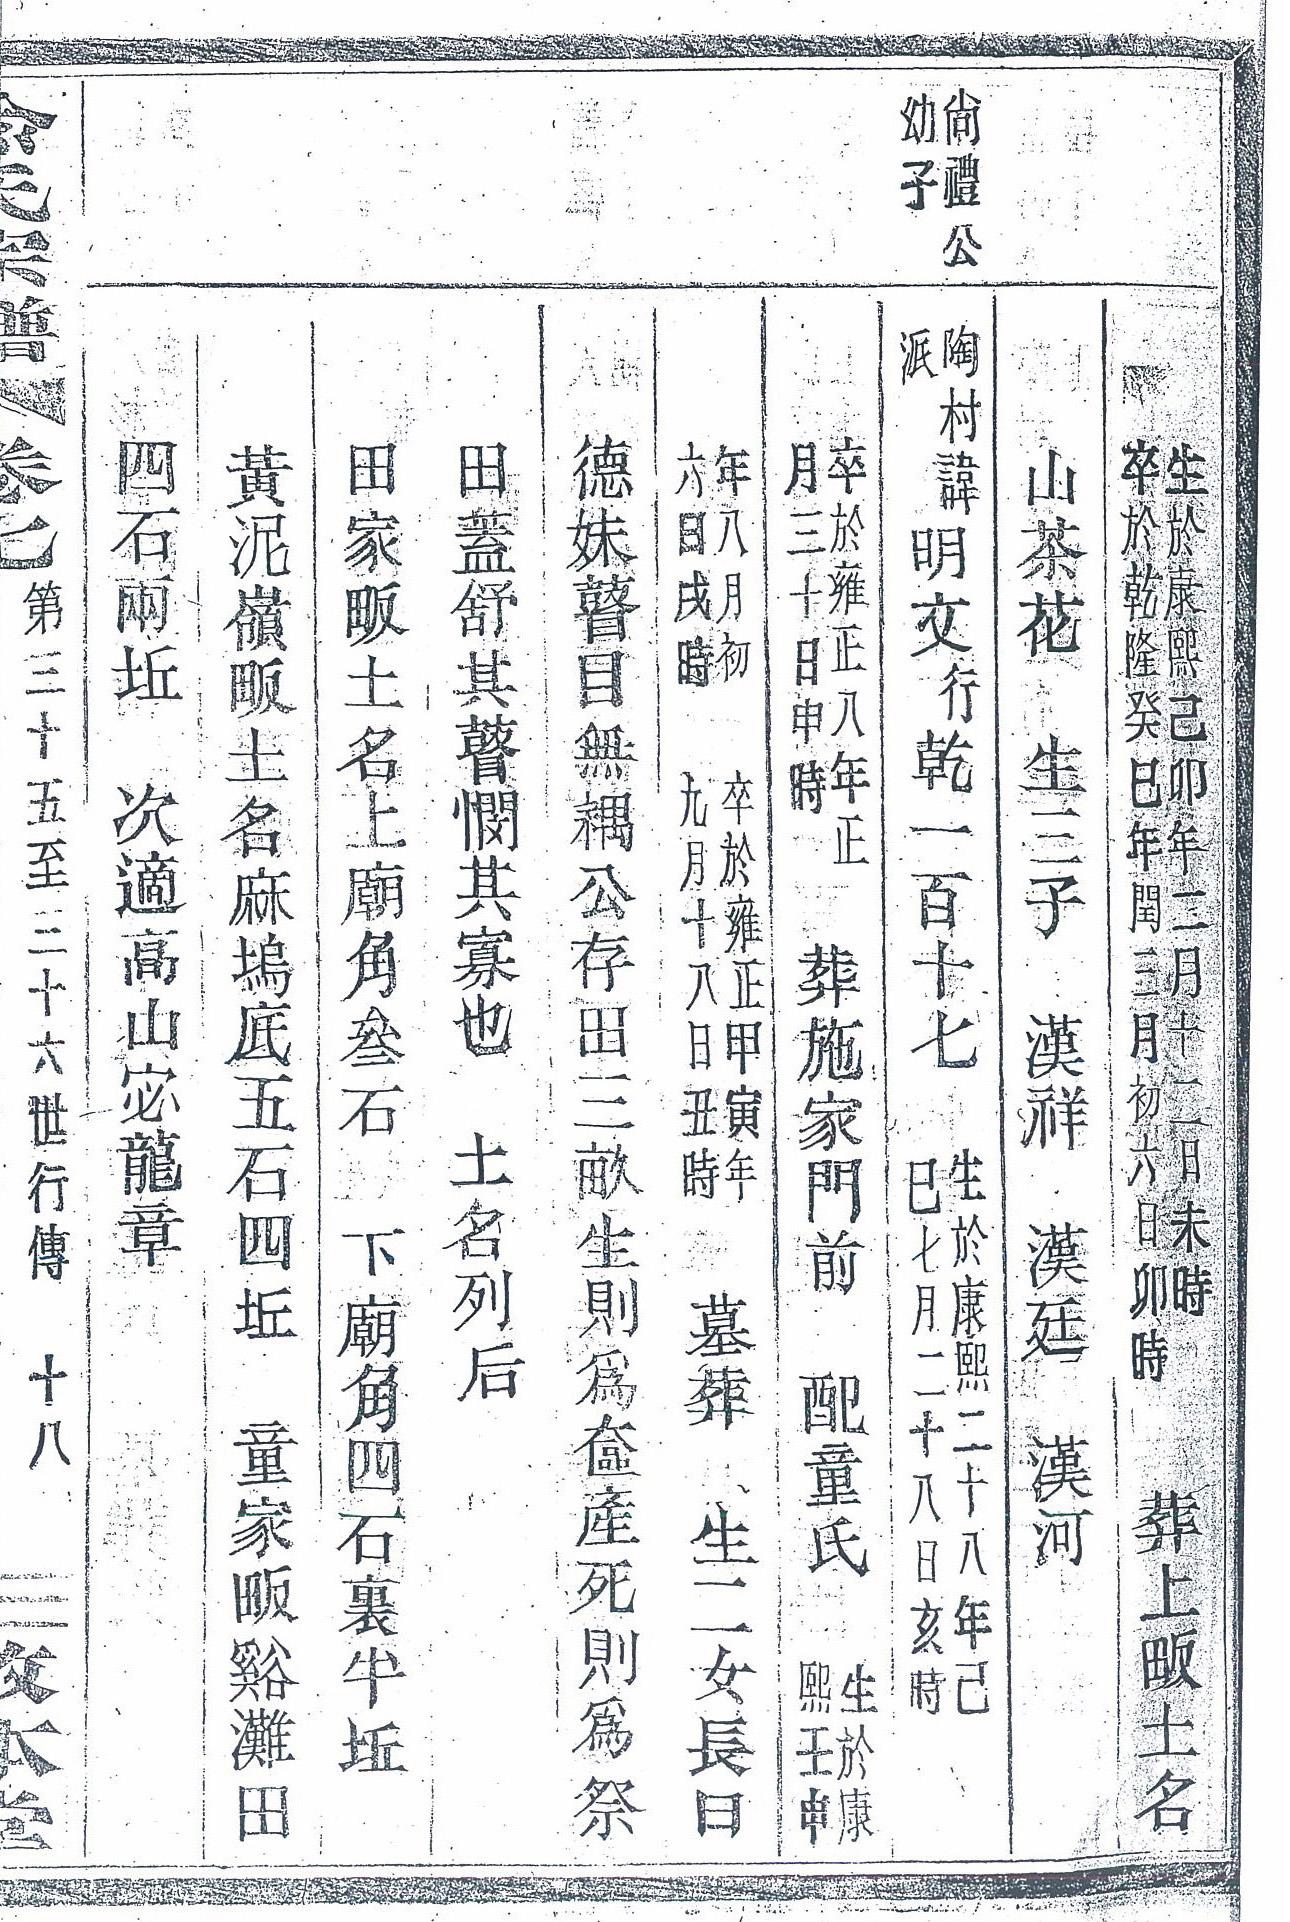 生於康熙己卯年二月十二日未時
卒於乾隆癸巳年閏三月初六日卯時
葬上畈土名
山茶花　生三子　漢祥　漢廷　漢河
尙禮公
幼子
陶村諱
派
明文行乾一百十七
生於康熙二十八年己
巳七月二十八日亥時
卒於雍正八年正
月三十日申時
葬施家門前　配童氏
生於康
熙壬申
年八月初
六日戌時
卒於雍正甲寅年
九月十八日丑時
墓葬　生二女長曰
德妹瞽目無耦公存田三畝生則爲奩產死則爲祭
田蓋舒其瞽憫其寡也　土名列后
田家畈土名上廟角叁石　下廟角四石裏半坵
黃泥嶺畈土名麻塢底五石四坵　童家畈谿灘田
四石兩坵　次適高山宓龍章
氏宗譜　卷七　第三十五至三十六世行傳　十八　本堂